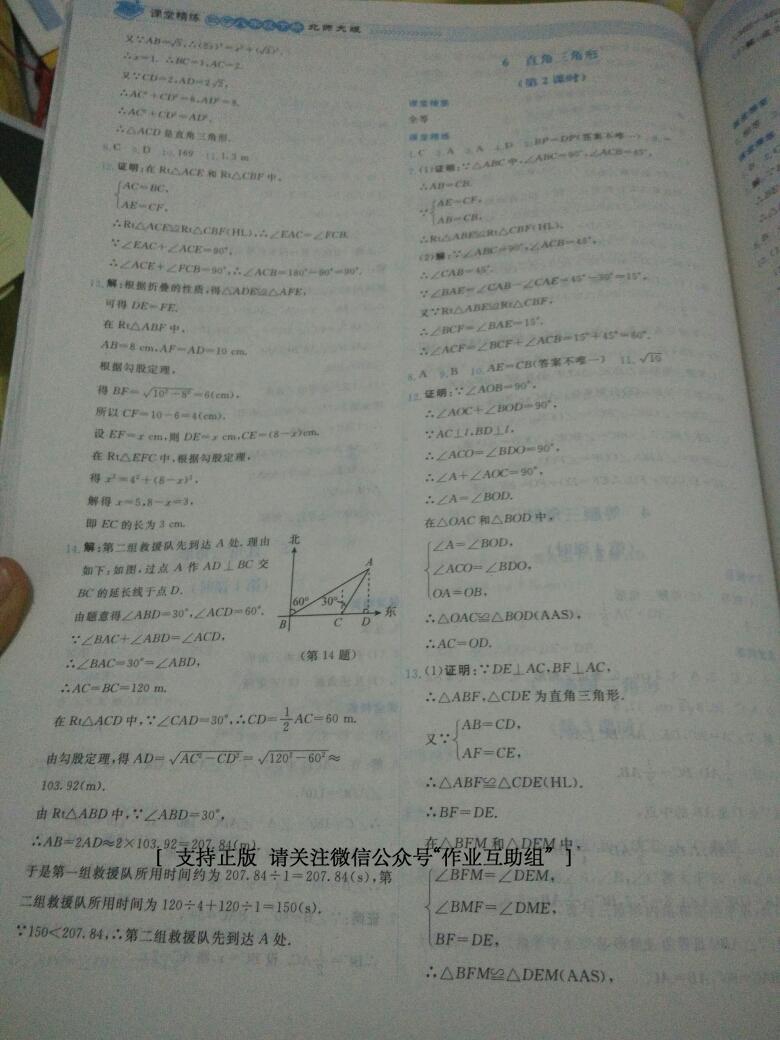 课堂精练 八年级下册 北师大版
又∵AB=√5,∴(2x)²=x²+(√3)².
∴x=1. ∴BC=1,AC=2.
又∵CD=2,AD=2√2,
∴AC²+CD²=8,AD²=8.
∴AC²+CD²=AD².
∴△ACD是直角三角形.
8.C 9.D 10.169 11.1.3 m
12.证明:在Rt△ACE和Rt△CBF中,
AC=BC,
AE=CF,
∴Rt△ACE≌Rt△CBF(HL),∴∠EAC=∠FCB.
∵∠EAC+∠ACE=90°,
∴∠ACE+∠FCB=90°,∴∠ACB=180°-90°=90°.
13.解:根据折叠的性质,得△ADE≌△AFE,
可得 DE=FE.
在Rt△ABF中,
AB=8 cm,AF=AD=10 cm.
根据勾股定理,
得 BF=√10²-8²=6(cm),
所以 CF=10-6=4(cm).
设 EF=x cm,则 DE=x cm,CE=(8-x)cm.
在Rt△EFC中,根据勾股定理,
得 x²=4²+(8-x)²,
解得 x=5,8-x=3,
即 EC的长为 3 cm.
14.解:第二组救援队先到达 A 处. 理由
如下:如图,过点 A 作 AD⊥BC 交
BC 的延长线于点 D.
由题意得∠ABD=30°,∠ACD=60°.
∵∠BAC+∠ABD=∠ACD,
∴∠BAC=30°=∠ABD,
∴AC=BC=120 m.
北
A
60° 30°
东
B C D
(第14题)
在Rt△ACD中,∵∠CAD=30°,∴CD=1/2AC=60 m.
由勾股定理,得 AD=√AC²-CD²=√120²-60²≈
103.92(m).
由 Rt△ABD中,∵∠ABD=30°,
∴AB=2AD≈2×103.92=207.84(m).
于是第一组救援队所用时间约为 207.84÷1=207.84(s),第
二组救援队所用时间为 120÷4+120÷1=150(s).
∵150<207.84,∴第二组救援队先到达 A 处.
6 直角三角形
(第2课时)
课堂精要
全等
课堂精练
1.C 2.A 3.A 4.D 5.BP=DP(答案不唯一) 6.=
7.(1)证明:∵△ABC中,∠ABC=90°,∠ACB=45°,
∴AB=CB.
∵
AE=CF,
AB=CB,
∴Rt△ABE≌Rt△CBF(HL).
(2)解:∵∠ABC=90°,∠ACB=45°,
∴∠CAB=45°.
∵∠BAE=∠CAB-∠CAE=45°-30°=15°,
又∵Rt△ABE≌Rt△CBF,
∴∠BCF=∠BAE=15°.
∴∠ACF=∠BCF+∠ACB=15°+45°=60°.
8.A 9.B 10.AE=CB(答案不唯一) 11.√10
12.证明:∵∠AOB=90°,
∴∠AOC+∠BOD=90°,
∵AC⊥l,BD⊥l,
∴∠ACO=∠BDO=90°,
∴∠A+∠AOC=90°,
∴∠A=∠BOD.
在△OAC 和△BOD中,
∠A=∠BOD,
∠ACO=∠BDO,
OA=OB,
∴△OAC≌△BOD(AAS),
∴AC=OD.
13.(1)证明:∵DE⊥AC,BF⊥AC,
∴△ABF,△CDE 为直角三角形.
又∵
AB=CD,
AF=CE,
∴△ABF≌△CDE(HL).
∴BF=DE.
在△BFM 和△DEM中,
∠BFM=∠DEM,
∠BMF=∠DME,
BF=DE,
∴△BFM≌△DEM(AAS),
[ 支持正版 请关注微信公众号“作业互助组” ]